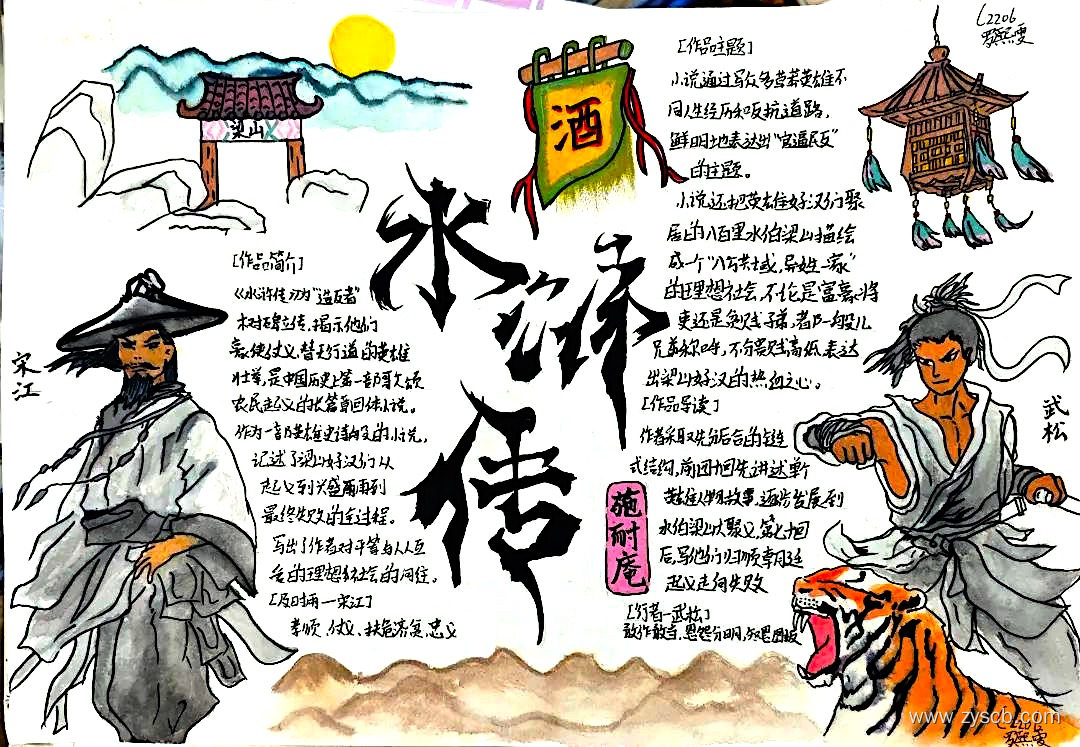 L2206
梁山
酒
水浒传
[作品主题]
小说通过写众多草莽英雄不
同人生经历和反抗道路,
鲜明地表达出"官逼民反"
的主题。
小说还把英雄好汉们聚
居的八百里水泊梁山描绘
成一个"八方共域,异姓一家"
的理想社会,不论是富豪将
吏还是贫贱子弟,都一般儿
兄弟称呼,不分贵贱高低.表达
出梁山好汉的热血之心。
[作品导读]
作者采取先分后合的链
式结构,前四十回先讲述单
英雄人物故事,逐步发展到
水泊梁山大聚义,第七十回
后,写他们归顺朝廷
起义走向失败
[行者—武松]
敢作敢当,恩怨分明,
[作品简介]
《水浒传》为"造反者"
树碑立传,揭示他们
豪侠仗义,替天行道的英雄
壮举,是中国历史上第一部歌颂
农民起义的长篇章回体小说。
作为一部英雄史诗的小说,
记述了梁山好汉们从
起义到兴盛再到
最终失败的全过程。
写出了作者对平等与人人互
的理想社会的向往。
[及时雨—宋江]
孝顺、仗义、扶危济贫、忠义
宋江
武松
施耐庵
www.zyscb.com